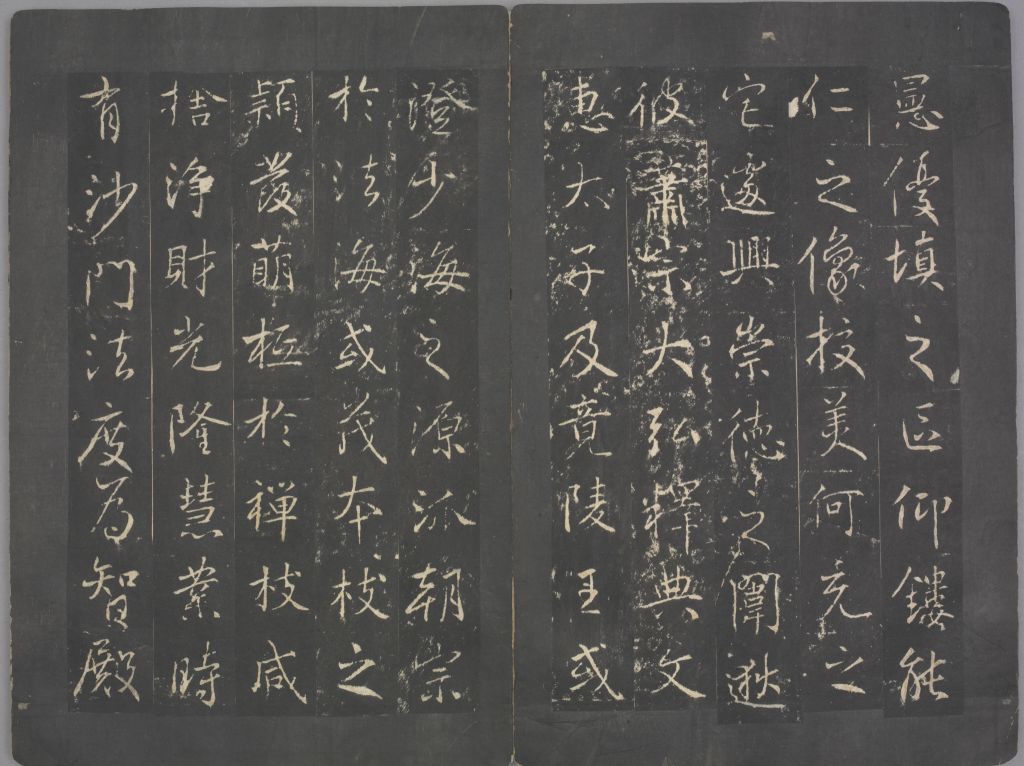 愚優填之區仰鏤能
仁之像校美何充之
宅遂興崇德之闈逖
彼蕭宗大弘釋典文
惠太子及竟陵王或
澄少海之源派朝宗
於法海或茂本枝之
穎發萌柢於禪枝咸
捨淨財光隆慧業時
有沙門法度為智殿